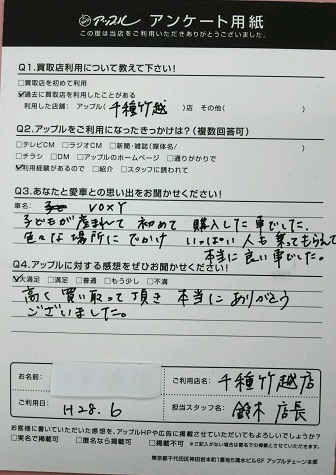 アップル アンケート用紙
この度は当店をご利用いただきありがとうございました。
Q1.買取店利用について教えて下さい!
□買取店を初めて利用
☑過去に買取店を利用したことがある
利用した店舗： アップル( 千種竹越 )店 その他( )
Q2.アップルをご利用になったきっかけは?(複数回答可)
□テレビCM □ラジオCM □新聞・雑誌(媒体名/ )
□チラシ □DM □アップルのホームページ □通りがかりで
☑利用経験があるので □紹介 □スタッフに誘われて
Q3.あなたと愛車との思い出をお聞かせください!
車名: VOXY
子どもが産まれて 初めて 購入した車でした。
色々な場所にでかけ いっぱい 人も乗ってもらって
本当に良い車でした。
Q4.アップルに対する感想をぜひお聞かせください!
☑大満足 □満足 □普通 □もう少し □不満
高く買い取って頂き 本当にありがとう
ございました。
お名前:
ご利用店名: 千種竹越店
ご利用日: H28.6
担当スタッフ名: 鈴木 店長
お客様に書いていただいた感想を、アップルHPや広告に掲載させていただいてもよろしいでしょうか?
□実名で掲載可 □匿名なら掲載可 □掲載不可 ※ご記入がない場合は匿名での掲載とさせていただきます。
東京都千代田区神田岩本町1番地5清水ビル6F アップルチェーン本部